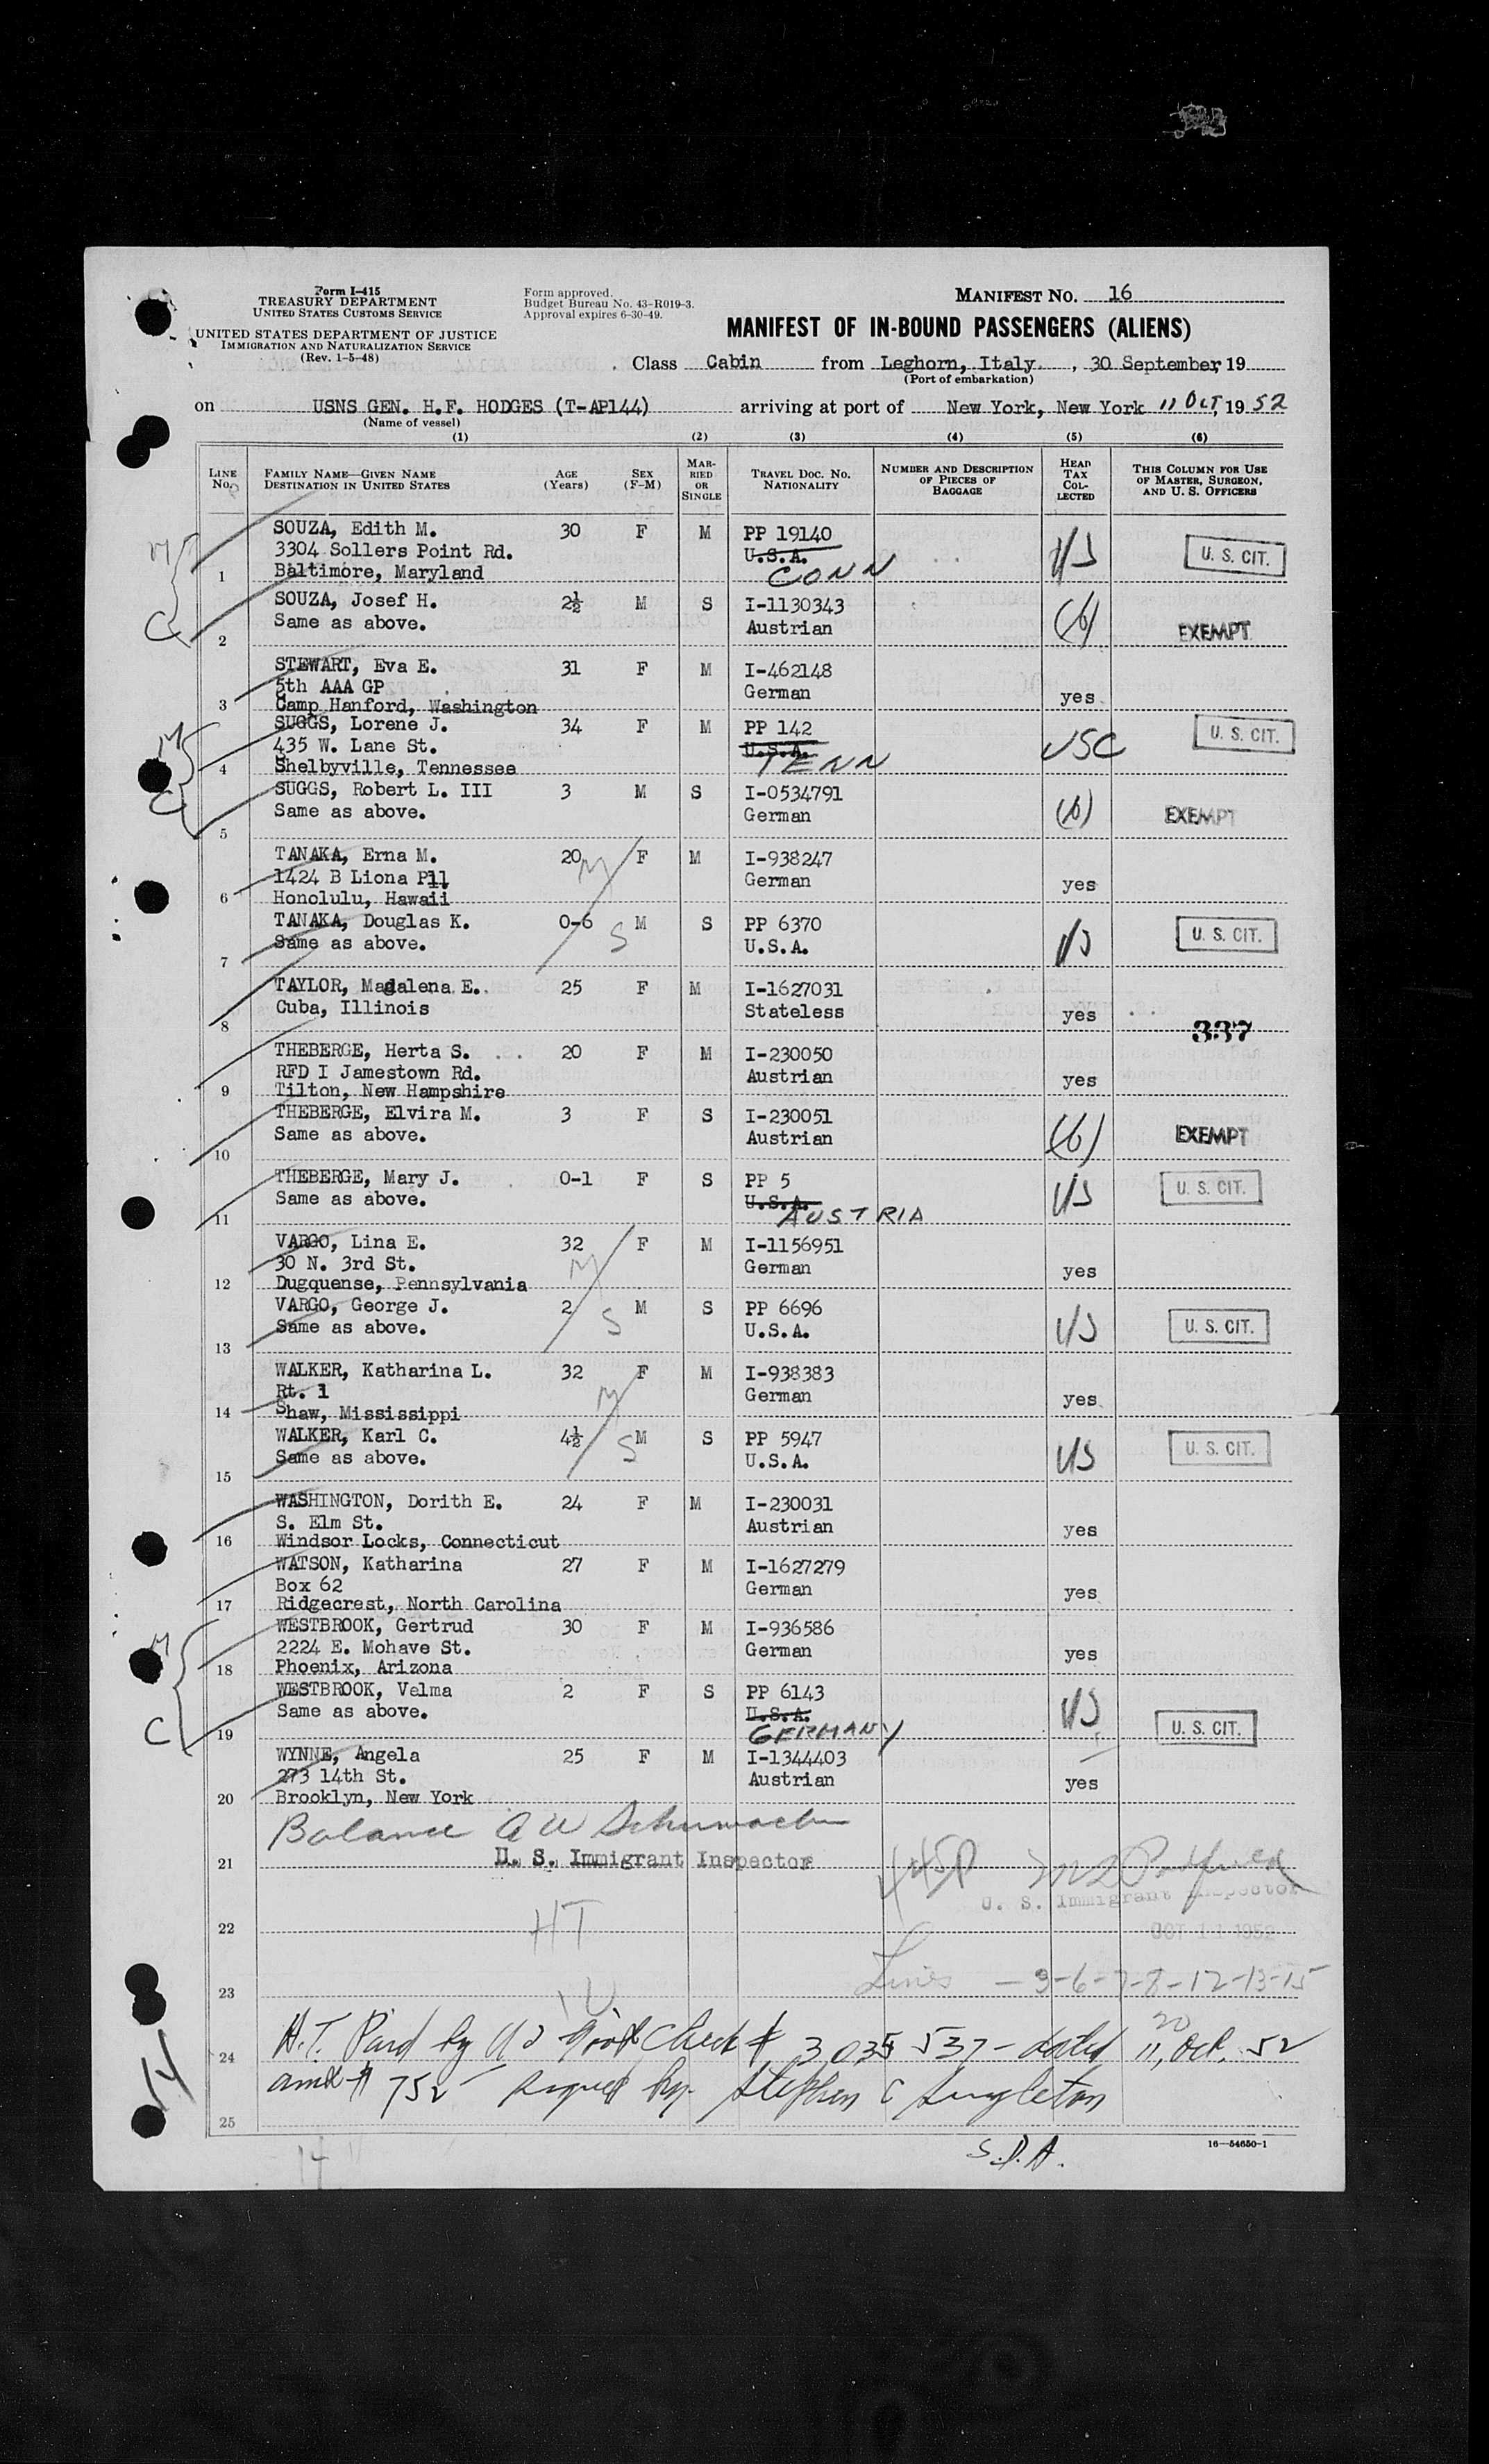 Form I-415
TREASURY DEPARTMENT
UNITED STATES CUSTOMS SERVICE
UNITED STATES DEPARTMENT OF JUSTICE
IMMIGRATION AND NATURALIZATION SERVICE
(Rev. 1-5-48)
Form approved.
Budget Bureau No. 43-R019-3.
Approval expires 6-30-49.
MANIFEST NO. 16
MANIFEST OF IN-BOUND PASSENGERS (ALIENS)
Class Cabin from Leghorn, Italy, 30 September, 19
(Port of embarkation)
on USNS GEN. H.F. HODGES (T-AP144) arriving at port of New York, New York 11 OCT, 1952
(Name of vessel)
(1) (2) (3) (4) (5) (6)
LINE No. FAMILY NAME—GIVEN NAME DESTINATION IN UNITED STATES AGE (Years) SEX (F-M) MARRIED OR SINGLE TRAVEL DOC. NO. NATIONALITY NUMBER AND DESCRIPTION OF PIECES OF BAGGAGE HEAD TAX COLLECTED THIS COLUMN FOR USE OF MASTER, SURGEON, AND U. S. OFFICERS
SOUZA, Edith M. 30 F M PP 19140
3304 Sollers Point Rd. U.S.A. US U. S. CIT.
1 Baltimore, Maryland CONN
SOUZA, Josef H. 2½ M S I-1130343
Same as above. Austrian (6) EXEMPT
2
STEWART, Eva E. 31 F M I-462148
5th AAA GP German
3 Camp Hanford, Washington yes
SUGGS, Lorene J. 34 F M PP 142 U. S. CIT.
435 W. Lane St. U.S.A. USC
4 Shelbyville, Tennessee TENN
SUGGS, Robert L. III 3 M S I-0534791
Same as above. German (6) EXEMPT
5
TANAKA, Erna M. 20 M F M I-938247
1424 B Liona Pll German yes
6 Honolulu, Hawaii
TANAKA, Douglas K. 0-6 S M S PP 6370
Same as above. U.S.A. US U. S. CIT.
7
TAYLOR, Magdalena E. 25 F M I-1627031
Cuba, Illinois Stateless yes
8 337
THEBERGE, Herta S. 20 F M I-230050
RFD I Jamestown Rd. Austrian yes
9 Tilton, New Hampshire
THEBERGE, Elvira M. 3 F S I-230051
Same as above. Austrian (6) EXEMPT
10
THEBERGE, Mary J. 0-1 F S PP 5
Same as above. U.S.A. US U. S. CIT.
11 AUSTRIA
VARGO, Lina E. 32 M F M I-1156951
30 N. 3rd St. German yes
12 Dugquense, Pennsylvania
VARGO, George J. 2 S M S PP 6696
Same as above. U.S.A. US U. S. CIT.
13
WALKER, Katharina L. 32 M F M I-938383
Rt. 1 German yes
14 Shaw, Mississippi
WALKER, Karl C. 4½ S M S PP 5947
Same as above. U.S.A. US U. S. CIT.
15
WASHINGTON, Dorith E. 24 F M I-230031
S. Elm St. Austrian yes
16 Windsor Locks, Connecticut
WATSON, Katharina 27 F M I-1627279
Box 62 German yes
17 Ridgecrest, North Carolina
WESTBROOK, Gertrud 30 F M I-936586
2224 E. Mohave St. German yes
18 Phoenix, Arizona
WESTBROOK, Velma 2 F S PP 6143
Same as above. U.S.A. US U. S. CIT.
19 GERMANY
WYNNE, Angela 25 F M I-1344403
273 14th St. Austrian yes
20 Brooklyn, New York
Balance A W Schumacher
21 U. S. Immigrant Inspector
U. S. Immigrant Inspector
22 HT OCT 11 1952
23 Lines - 3-6-7-8-12-13-15
20
24 H.T. Paid by US Govt Check # 3,035 537 - dated 11, Oct. 52
amt # 752 signed by Stephen C Singleton
25
S.D.A.
16—54650-1